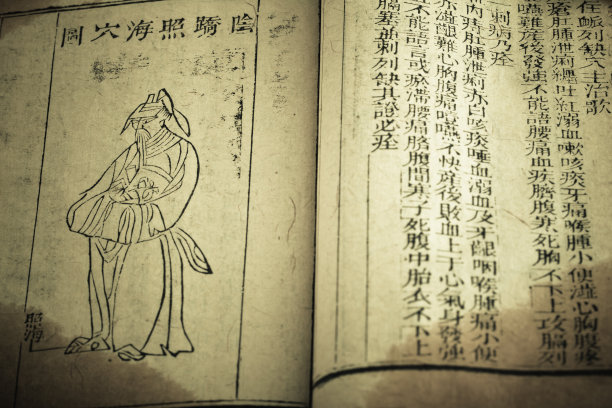 陰蹻照海穴圖
照海
列缺穴主治歌
肛腫泄痢纏吐紅溺血嗽咳痰牙痛喉腫小便澁心胸腹疼
噎嚥難產後發強不能語腰痛血疾臍腹寒死胸不下上攻膈列
刺病乃痊
內痔肛腫泄痢赤白咳痰唾血溺血及牙齦咽喉腫痛小便
赤澁艱難心胸腹痛噎嚥不快產後敗血上于心氣身發強
不能語言或瘀滯腰痛臍腹間寒子死腹中胎衣不下上
膈塞並刺列缺其證必痊